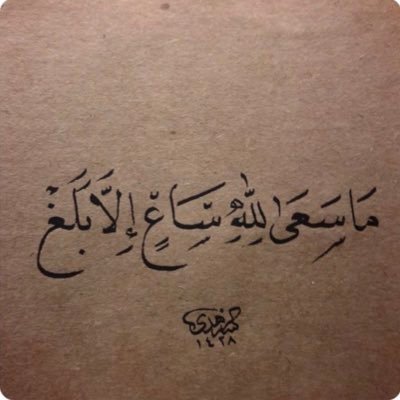 مَا سَعَىٰ لِلَّهِ سَّاعٍ إِلَّا بَلَغْ
١٤٣٨